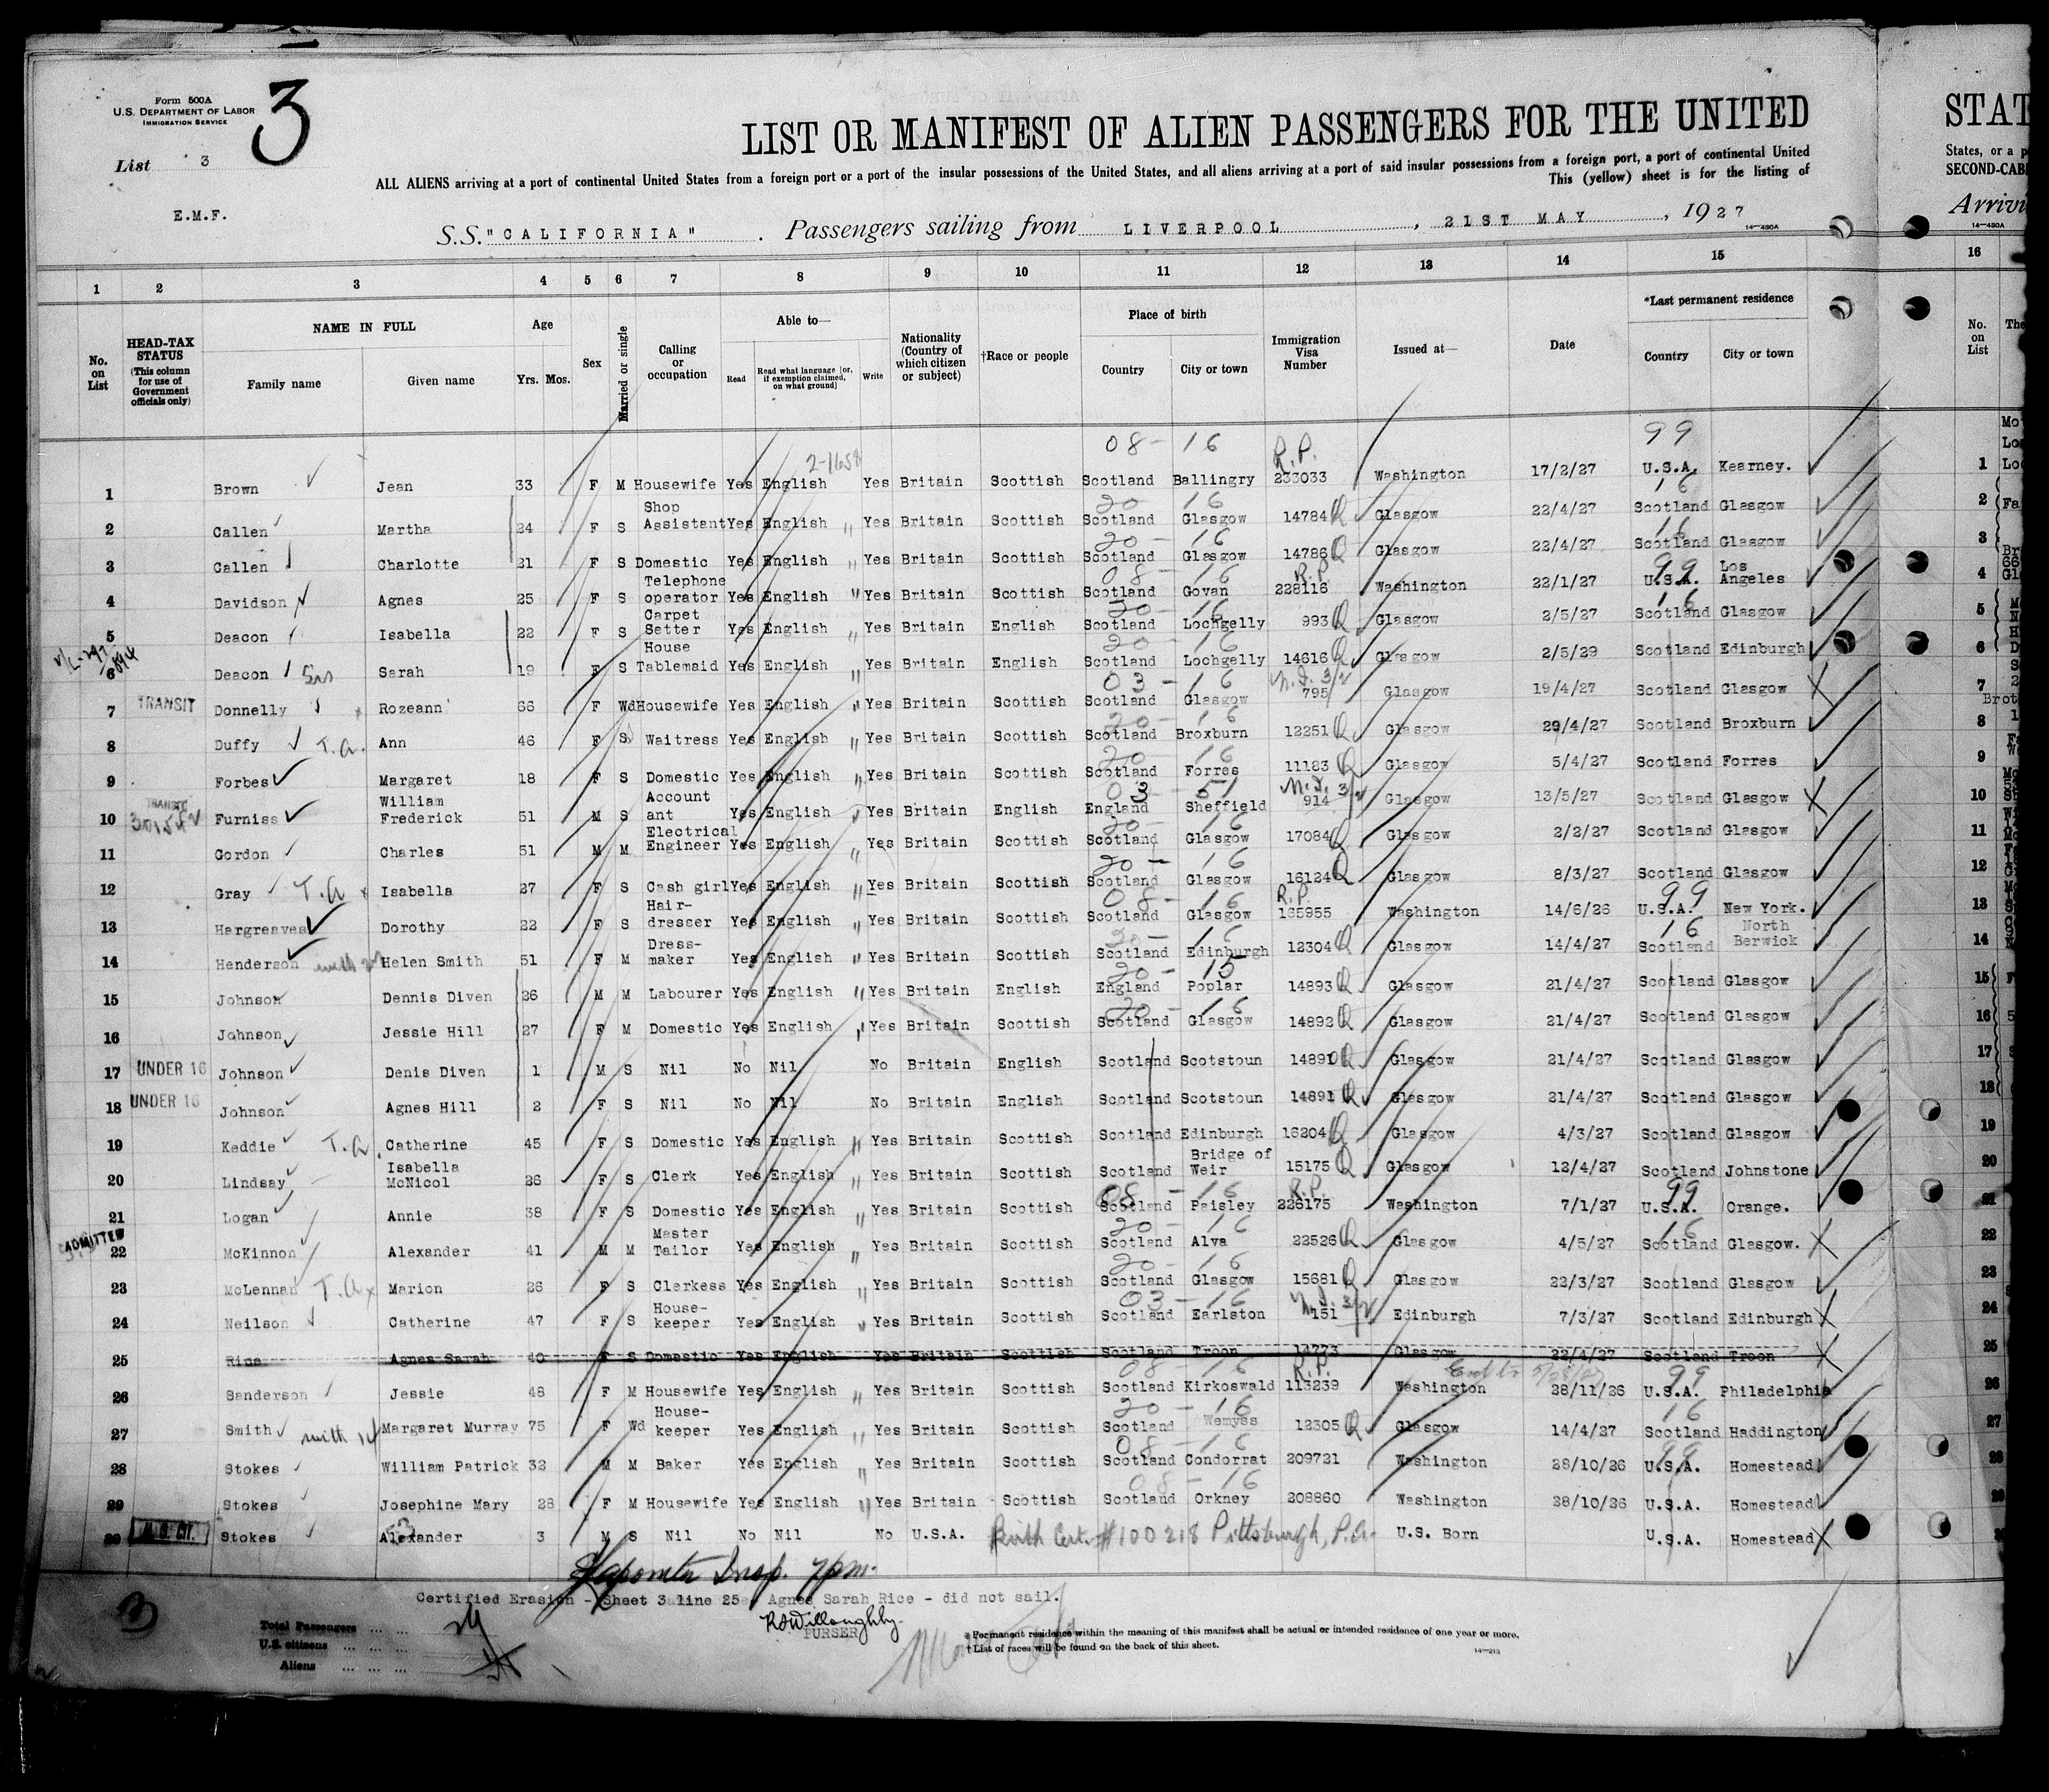 Form 500A
U.S. DEPARTMENT OF LABOR
IMMIGRATION SERVICE
3
List 3
E.M.F.
LIST OR MANIFEST OF ALIEN PASSENGERS FOR THE UNITED
STAT
ALL ALIENS arriving at a port of continental United States from a foreign port or a port of the insular possessions of the United States, and all aliens arriving at a port of said insular possessions from a foreign port, a port of continental United
States, or a p
This (yellow) sheet is for the listing of
SECOND-CAB
S.S. "CALIFORNIA" . Passengers sailing from LIVERPOOL, 21ST MAY, 1927
Arrivi
14—430A
14—430A
1 2 3 4 5 6 7 8 9 10 11 12 13 14 15 16
No. on List
HEAD-TAX STATUS (This column for use of Government officials only)
NAME IN FULL
Family name Given name
Age
Yrs. Mos.
Sex
Married or single
Calling or occupation
Able to—
Read Read what language [or, if exemption claimed, on what ground] Write
Nationality (Country of which citizen or subject)
†Race or people
Place of birth
Country City or town
Immigration Visa Number
Issued at—
Date
*Last permanent residence
Country City or town
No. on List
The
08 - 16 R.P. 99
2-1658
1 Brown Jean 33 F M Housewife Yes English Yes Britain Scottish Scotland Ballingry 233033 Washington 17/2/27 U.S.A. Kearney. 1
20 16 16
2 Callen Martha 24 F S Shop Assistant Yes English " Yes Britain Scottish Scotland Glasgow 14784 Q Glasgow 22/4/27 Scotland Glasgow 2
20 - 16 16
3 Callen Charlotte 21 F S Domestic Yes English " Yes Britain Scottish Scotland Glasgow 14786 Q Glasgow 22/4/27 Scotland Glasgow 3
08 - 16 R.P. 99
4 Davidson Agnes 25 F S Telephone operator Yes English " Yes Britain Scottish Scotland Govan 228116 Washington 22/1/27 U.S.A. Los Angeles 4
20 - 16 16
5 Deacon Isabella 22 F S Carpet Setter Yes English " Yes Britain English Scotland Lochgelly 993 Q Glasgow 2/5/27 Scotland Glasgow 5
20 - 16
6 Deacon Sis Sarah 19 F S House Tablemaid Yes English " Yes Britain English Scotland Lochgelly 14616 Q Glasgow 2/5/29 Scotland Edinburgh 6
03 - 16 N.I. 3/2
7 TRANSIT Donnelly Rozeann 66 F Wd Housewife Yes English " Yes Britain Scottish Scotland Glasgow 795 Glasgow 19/4/27 Scotland Glasgow 7
20 - 16
8 Duffy T.A. Ann 46 F S Waitress Yes English " Yes Britain Scottish Scotland Broxburn 12251 Q Glasgow 29/4/27 Scotland Broxburn 8
20 - 16
9 Forbes Margaret 18 F S Domestic Yes English " Yes Britain Scottish Scotland Forres 11183 Q Glasgow 5/4/27 Scotland Forres 9
03 - 51 N.I. 3/2
10 TRANSIT Furniss William Frederick 51 M S Accountant Yes English " Yes Britain English England Sheffield 914 Glasgow 13/5/27 Scotland Glasgow 10
20 - 16
11 Gordon Charles 51 M M Electrical Engineer Yes English " Yes Britain Scottish Scotland Glasgow 17084 Q Glasgow 2/2/27 Scotland Glasgow 11
20 - 16
12 Gray T.A x Isabella 27 F S Cash girl Yes English " Yes Britain Scottish Scotland Glasgow 16124 Q Glasgow 8/3/27 Scotland Glasgow 12
08 - 16 R.P. 99
13 Hargreaves Dorothy 22 F S Hair-dresser Yes English " Yes Britain Scottish Scotland Glasgow 165955 Washington 14/6/26 U.S.A. New York. 13
20 - 16 16
14 Henderson with 27 Helen Smith 51 F M Dress-maker Yes English " Yes Britain Scottish Scotland Edinburgh 12304 Q Glasgow 14/4/27 Scotland North Berwick 14
20 - 15
15 Johnson Dennis Diven 26 M M Labourer Yes English " Yes Britain English England Poplar 14893 Q Glasgow 21/4/27 Scotland Glasgow 15
20 - 16
16 Johnson Jessie Hill 27 F M Domestic Yes English " Yes Britain Scottish Scotland Glasgow 14892 Q Glasgow 21/4/27 Scotland Glasgow 16
17 UNDER 16 Johnson Denis Diven 1 M S Nil No Nil No Britain English Scotland Scotstoun 14890 Q Glasgow 21/4/27 Scotland Glasgow 17
18 UNDER 16 Johnson Agnes Hill 2 F S Nil No Nil No Britain English Scotland Scotstoun 14891 Q Glasgow 21/4/27 Scotland Glasgow 18
19 Keddie T.A. Catherine 45 F S Domestic Yes English " Yes Britain Scottish Scotland Edinburgh 16204 Q Glasgow 4/3/27 Scotland Glasgow 19
20 Lindsay Isabella McNicol 26 F S Clerk Yes English " Yes Britain Scottish Scotland Bridge of Weir 15175 Q Glasgow 12/4/27 Scotland Johnstone 20
08 - 16 R.P. 99
21 Logan Annie 38 F S Domestic Yes English " Yes Britain Scottish Scotland Paisley 226175 Washington 7/1/27 U.S.A. Orange. 21
20 - 16 16
ADMITTED
22 McKinnon Alexander 41 M M Master Tailor Yes English " Yes Britain Scottish Scotland Alva 22526 Q Glasgow 4/5/27 Scotland Glasgow. 22
20 - 16
23 McLennan T.A x Marion 26 F S Clerkess Yes English " Yes Britain Scottish Scotland Glasgow 15681 Q Glasgow 22/3/27 Scotland Glasgow 23
03 - 16 N.I. 3/2
24 Neilson Catherine 47 F S House-keeper Yes English " Yes Britain Scottish Scotland Earlston 151 Edinburgh 7/3/27 Scotland Edinburgh 24
25 Rice Agnes Sarah 40 F S Domestic Yes English Yes Britain Scottish Scotland Troon 14773 Glasgow 22/4/27 Scotland Troon 25
08 - 16 R.P. 99
26 Sanderson Jessie 48 F M Housewife Yes English " Yes Britain Scottish Scotland Kirkoswald 113239 Washington 28/11/26 U.S.A. Philadelphia 26
20 - 16 16
27 Smith with 14 Margaret Murray 75 F Wd House-keeper Yes English " Yes Britain Scottish Scotland Wemyss 12305 Q Glasgow 14/4/27 Scotland Haddington 27
08 - 16 99
28 Stokes William Patrick 32 M M Baker Yes English " Yes Britain Scottish Scotland Condorrat 209721 Washington 28/10/26 U.S.A. Homestead 28
08 - 16
29 Stokes Josephine Mary 28 F M Housewife Yes English " Yes Britain Scottish Scotland Orkney 208860 Washington 28/10/26 U.S.A. Homestead 29
30 U.S. CIT. Stokes Alexander 3 M S Nil No Nil No U.S.A. Birth Cert. #100218 Pittsburgh, P.a. U.S. Born U.S.A. Homestead
Insp. 7pm.
Certified Erasion - Sheet 3 line 25 Agnes Sarah Rice - did not sail.
3
Total Passengers ... ... 29
U.S. citizens ... ... ...
Aliens ... ... ...
RSWilloughby.
PURSER
* Permanent residence within the meaning of this manifest shall be actual or intended residence of one year or more.
† List of races will be found on the back of this sheet.
14—213